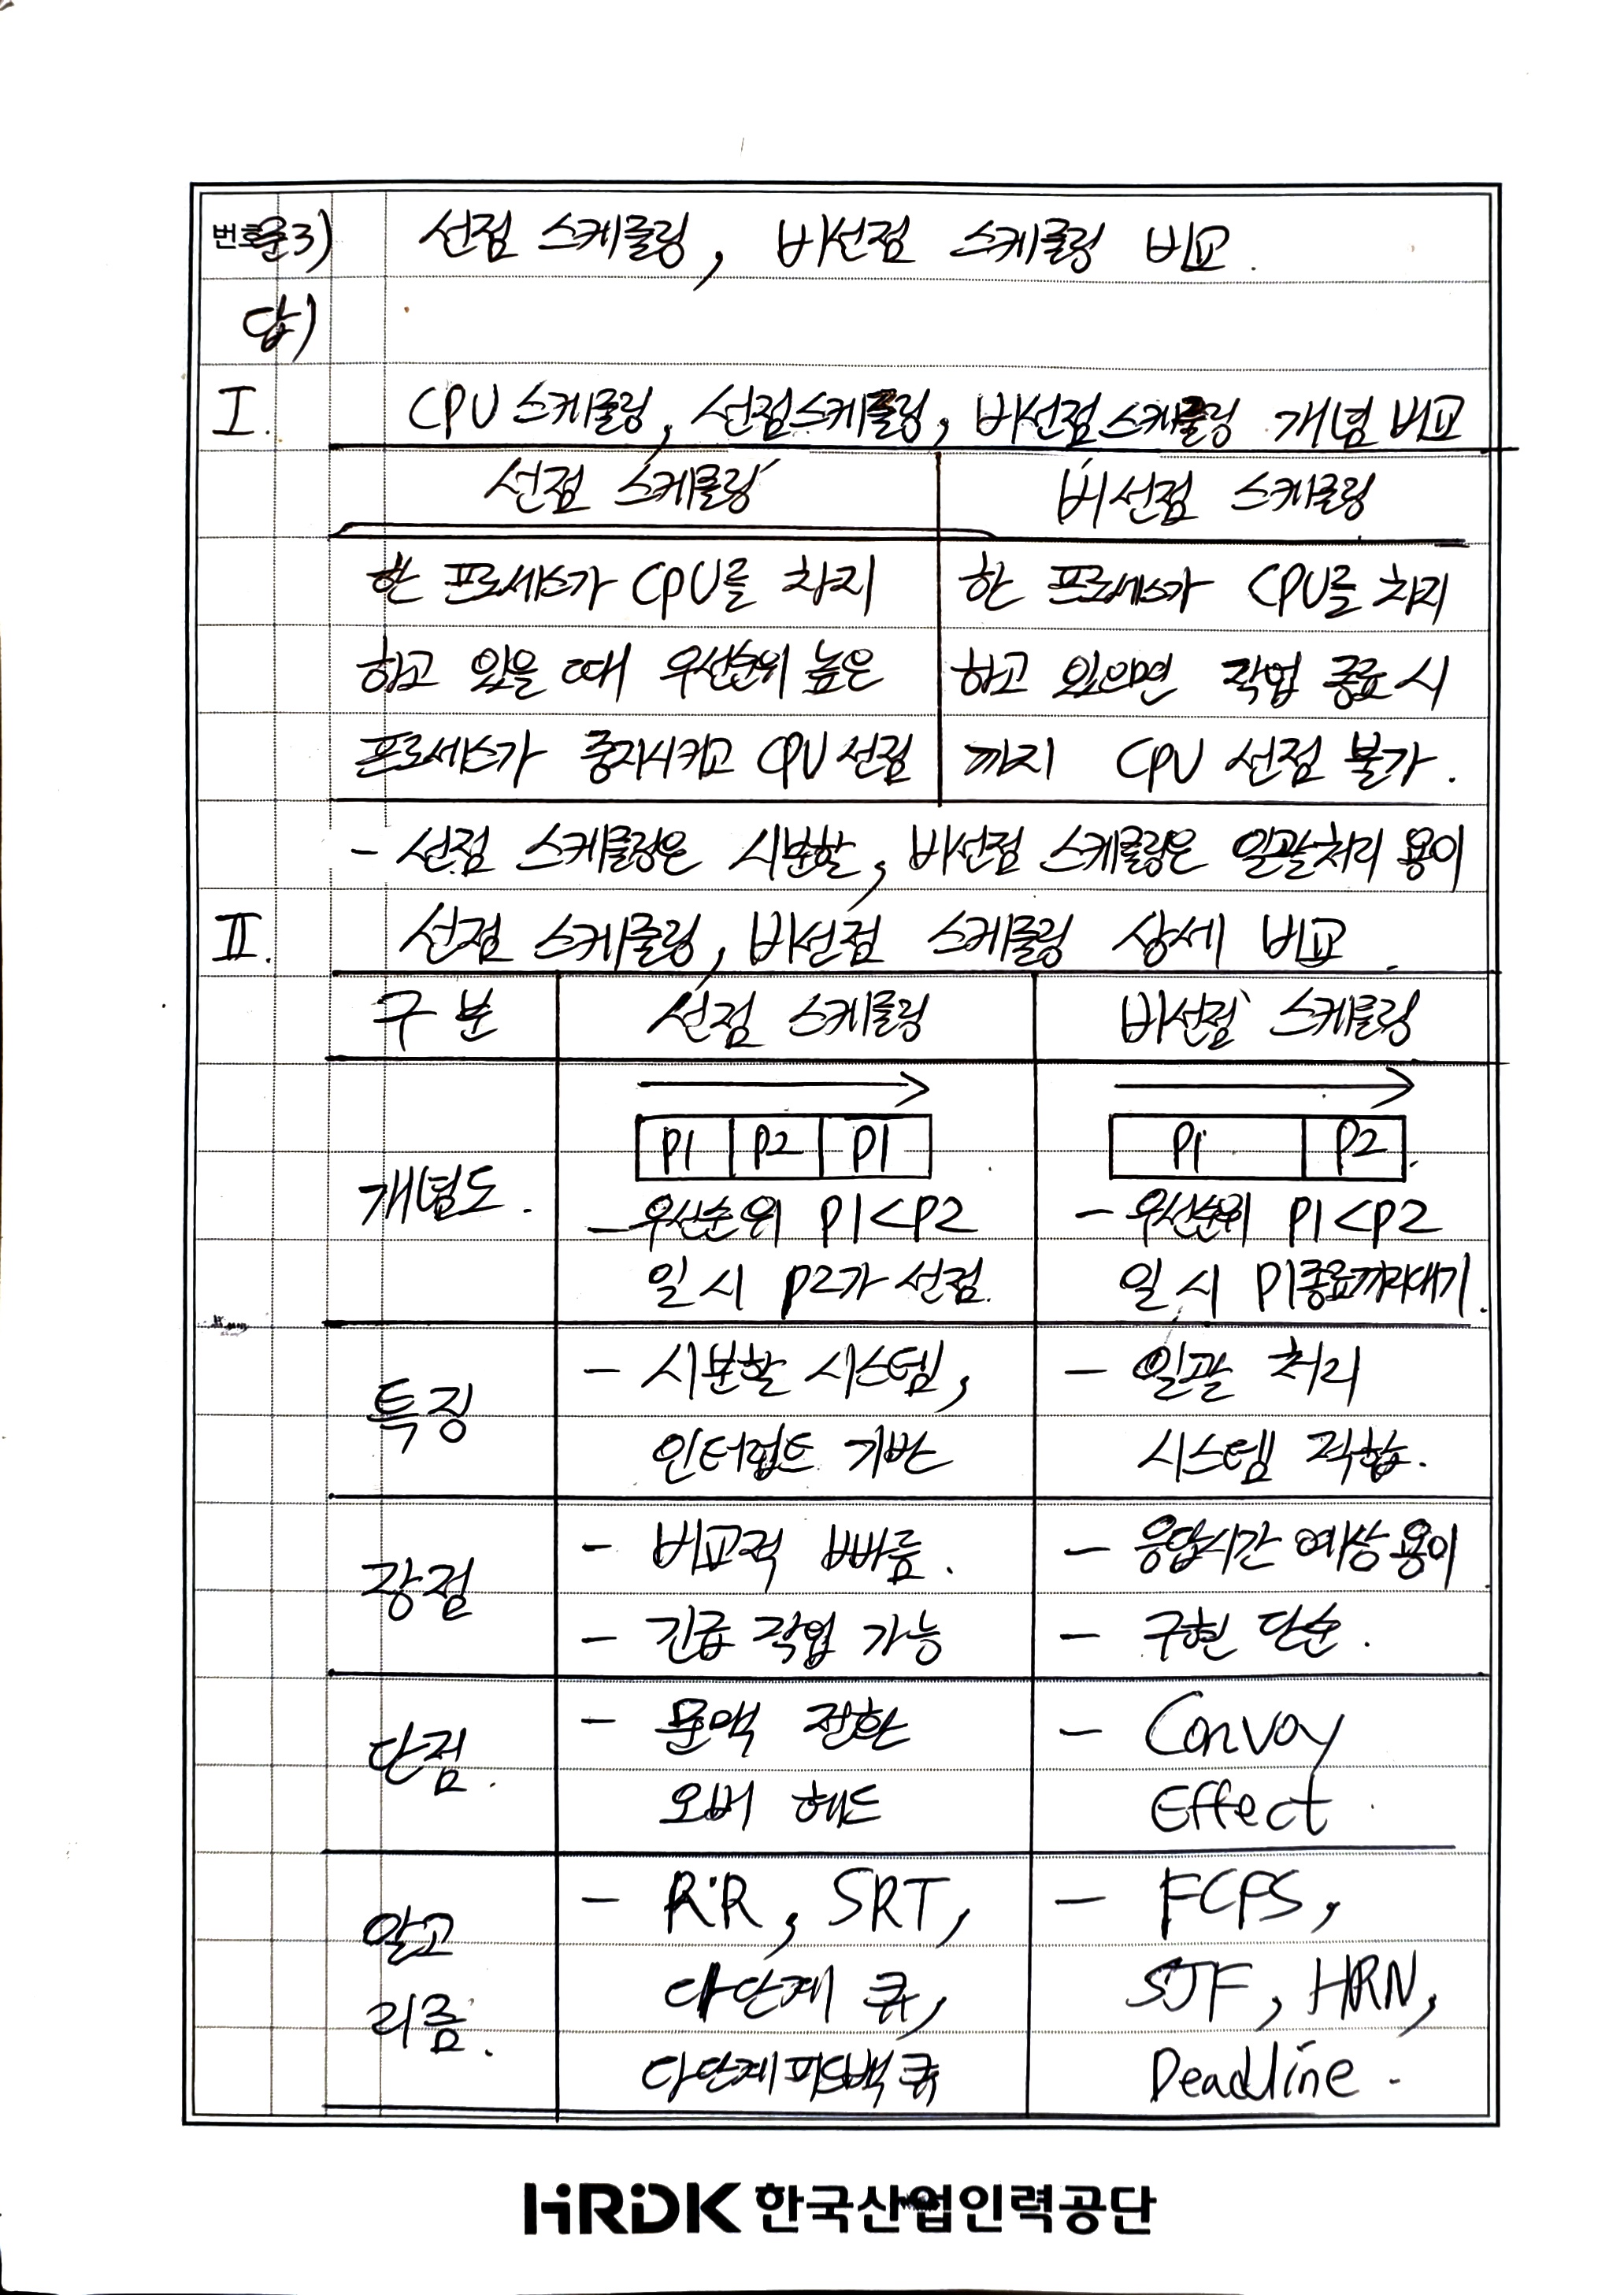 번호 문3) 선점 스케줄링, 비선점 스케줄링 비교.
답)
I. CPU 스케줄링, 선점스케줄링, 비선점스케줄링 개념 비교
선점 스케줄링 비선점 스케줄링
한 프로세스가 CPU를 차지 한 프로세스가 CPU를 차지
하고 있을 때 우선순위 높은 하고 있으면 작업 종료 시
프로세스가 중지시키고 CPU 선점 까지 CPU 선점 불가.
- 선점 스케줄링은 시분할, 비선점 스케줄링은 일괄처리 용이
II. 선점 스케줄링, 비선점 스케줄링 상세 비교.
구분 선점 스케줄링 비선점 스케줄링
개념도.
P1 P2 P1
- 우선순위 P1<P2
일 시 P2가 선점.
P1 P2
- 우선순위 P1<P2
일 시 P1종료까지대기.
특징
- 시분할 시스템,
인터럽트 기반
- 일괄 처리
시스템 적합.
장점
- 비교적 빠름.
- 긴급 작업 가능
- 응답시간 예상 용이
- 구현 단순.
단점.
- 문맥 전환
오버 헤드
- Convoy
Effect
알고
리즘.
- RR, SRT,
다단계 큐,
다단계피드백 큐
- FCFS,
SJF, HRN,
Deadline.
HRDK 한국산업인력공단